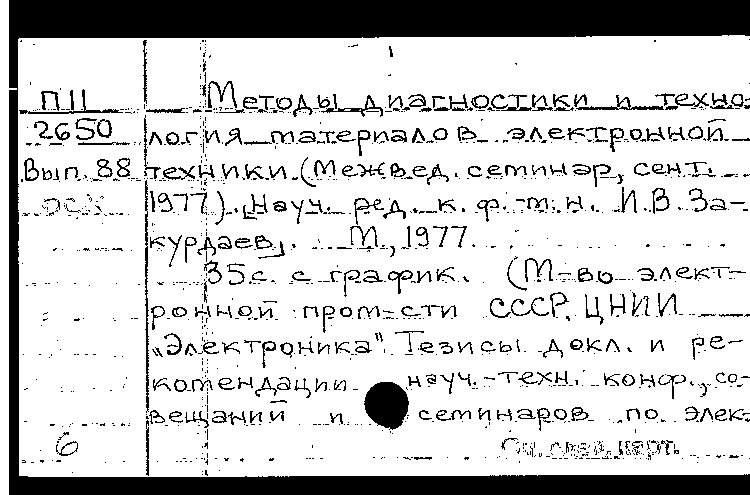 П11
2650
Вып. 88
Методы диагностики и техно-
логия материалов электронной
техники. (Межвед. семинар, сент.
1977). [Науч. ред. к. ф.-м. н. И.В. За-
курдаев]. М., 1977.
35 с. с график. (М-во элект-
ронной пром-сти СССР. ЦНИИ
"Электроника". Тезисы докл. и ре-
комендации науч.-техн. конф., со-
вещаний и семинаров по элек-
6
См. след. карт.